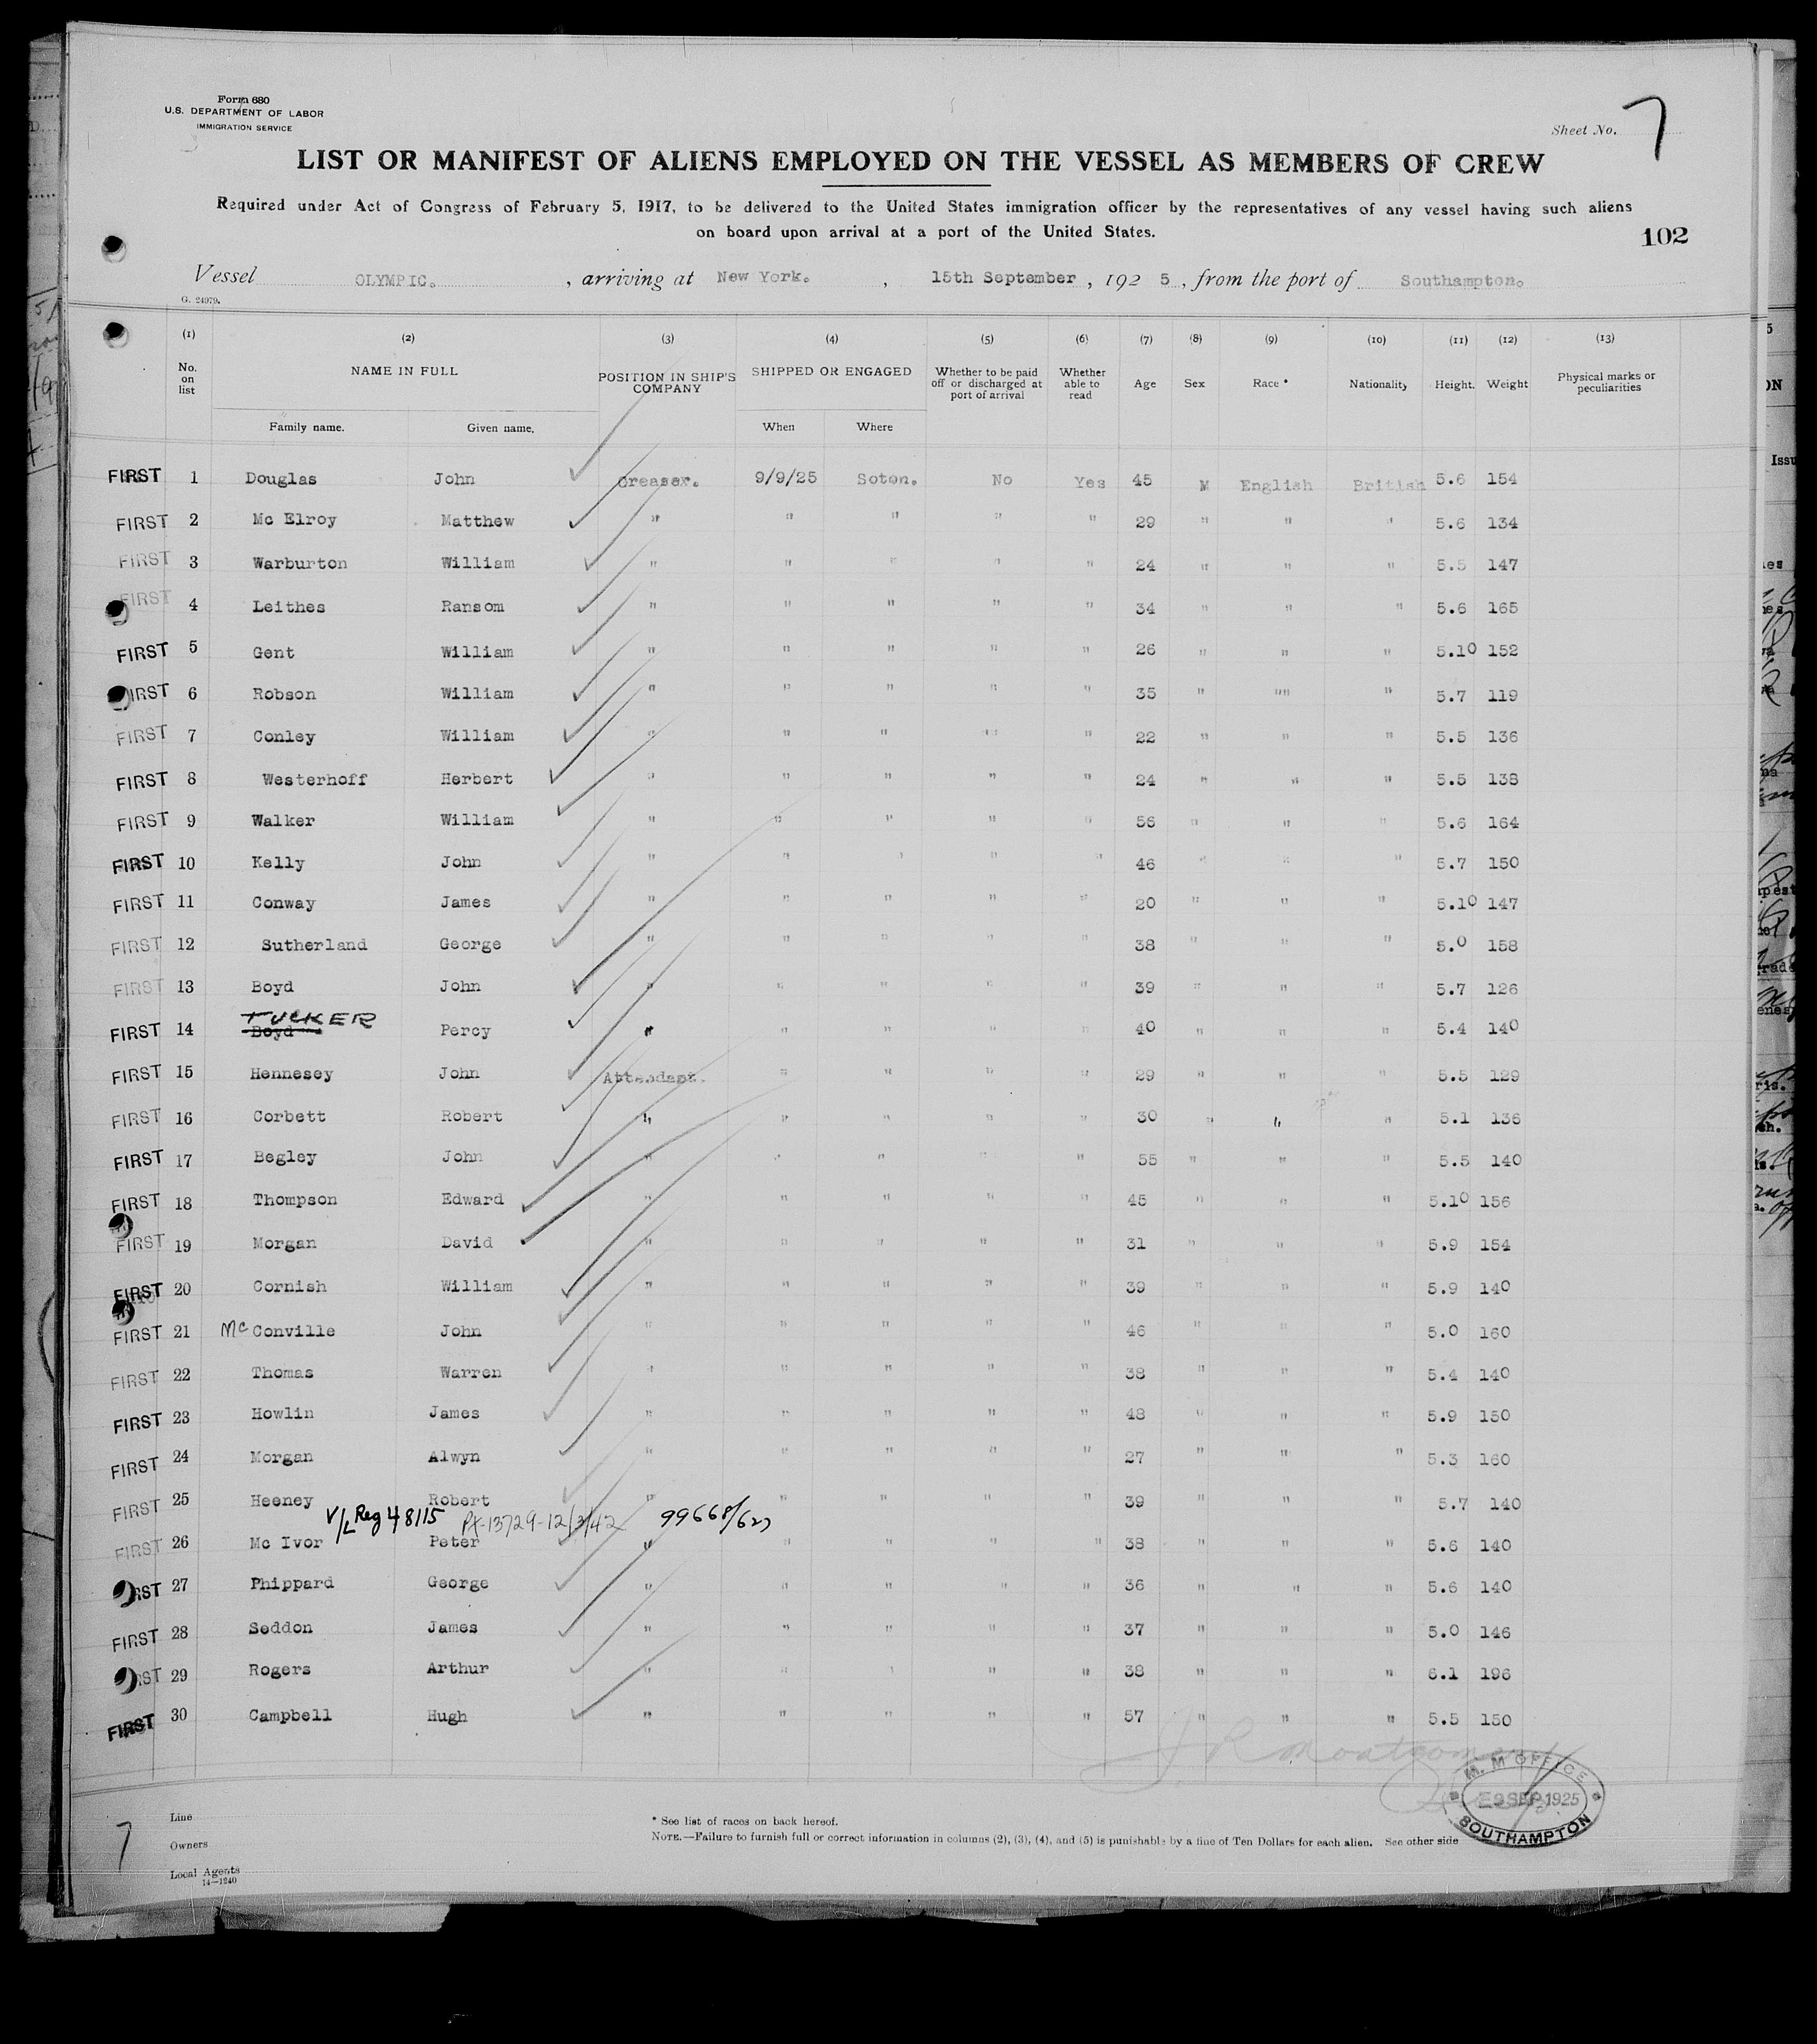 Form 680
U.S. DEPARTMENT OF LABOR
IMMIGRATION SERVICE
Sheet No. 7
LIST OR MANIFEST OF ALIENS EMPLOYED ON THE VESSEL AS MEMBERS OF CREW
Required under Act of Congress of February 5, 1917, to be delivered to the United States immigration officer by the representatives of any vessel having such aliens
on board upon arrival at a port of the United States.
102
Vessel OLYMPIC. , arriving at New York. , 15th September , 192 5 , from the port of Southampton.
G. 24979.
(1) (2) (3) (4) (5) (6) (7) (8) (9) (10) (11) (12) (13)
No. on list NAME IN FULL POSITION IN SHIP'S COMPANY SHIPPED OR ENGAGED Whether to be paid off or discharged at port of arrival Whether able to read Age Sex Race * Nationality Height. Weight Physical marks or peculiarities
Family name. Given name. When Where
FIRST 1 Douglas John Greaser. 9/9/25 Soton. No Yes 45 M English British 5.6 154
FIRST 2 Mc Elroy Matthew " " " " " 29 " " " 5.6 134
FIRST 3 Warburton William " " " " " 24 " " " 5.5 147
FIRST 4 Leithes Ransom " " " " " 34 " " " 5.6 165
FIRST 5 Gent William " " " " " 26 " " " 5.10 152
FIRST 6 Robson William " " " " " 35 " "" " 5.7 119
FIRST 7 Conley William " " " " " 22 " " " 5.5 136
FIRST 8 Westerhoff Herbert " " " " " 24 " " " 5.5 138
FIRST 9 Walker William " " " " " 56 " " " 5.6 164
FIRST 10 Kelly John " " " " " 46 " " " 5.7 150
FIRST 11 Conway James " " " " " 20 " " " 5.10 147
FIRST 12 Sutherland George " " " " " 38 " " " 5.0 158
FIRST 13 Boyd John " " " " " 39 " " " 5.7 126
TUCKER
FIRST 14 Boyd Percy " " " " " 40 " " " 5.4 140
FIRST 15 Hennesey John Attendant. " " " " 29 " " " 5.5 129
FIRST 16 Corbett Robert " " " " " 30 " " " 5.1 136
FIRST 17 Begley John " " " " " 55 " " " 5.5 140
FIRST 18 Thompson Edward " " " " " 45 " " " 5.10 156
FIRST 19 Morgan David " " " " " 31 " " " 5.9 154
FIRST 20 Cornish William " " " " " 39 " " " 5.9 140
FIRST 21 Mc Conville John " " " " " 46 " " " 5.0 160
FIRST 22 Thomas Warren " " " " " 38 " " " 5.4 140
FIRST 23 Howlin James " " " " " 48 " " " 5.9 150
FIRST 24 Morgan Alwyn " " " " " 27 " " " 5.3 160
FIRST 25 Heeney Robert " " " " " 39 " " " 5.7 140
V/L Reg 48115 99668/627
FIRST 26 Mc Ivor Peter " " " " " 38 " " " 5.6 140
FIRST 27 Phippard George " " " " " 36 " " " 5.6 140
FIRST 28 Seddon James " " " " " 37 " " " 5.0 146
FIRST 29 Rogers Arthur " " " " " 38 " " " 6.1 196
FIRST 30 Campbell Hugh " " " " " 57 " " " 5.5 150
J R Montgomery
M. M OFFICE
E 9 SEP 1925
SOUTHAMPTON
7
Line
Owners
Local Agents
14—1240
* See list of races on back hereof.
NOTE.—Failure to furnish full or correct information in columns (2), (3), (4), and (5) is punishable by a fine of Ten Dollars for each alien. See other side